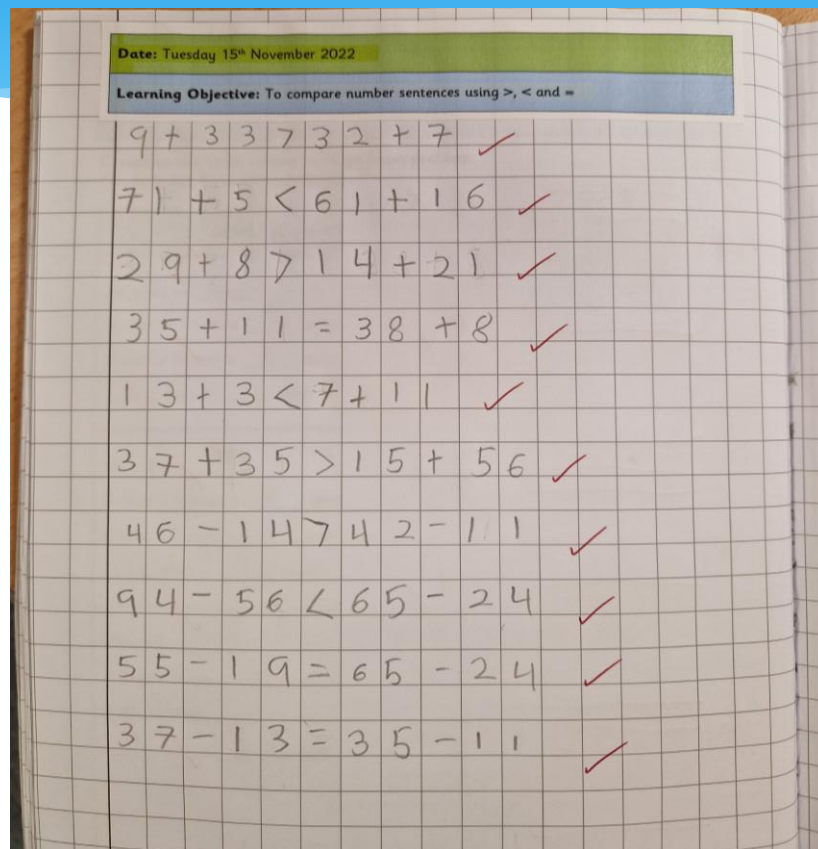 Date: Tuesday 15th November 2022
Learning Objective: To compare number sentences using >, < and =
9+33>32+7
71+5<61+16
29+8>14+21
35+11=38+8
13+3<7+11
37+35>15+56
46-14>42-11
94-56<65-24
55-19=65-24
37-13=35-11